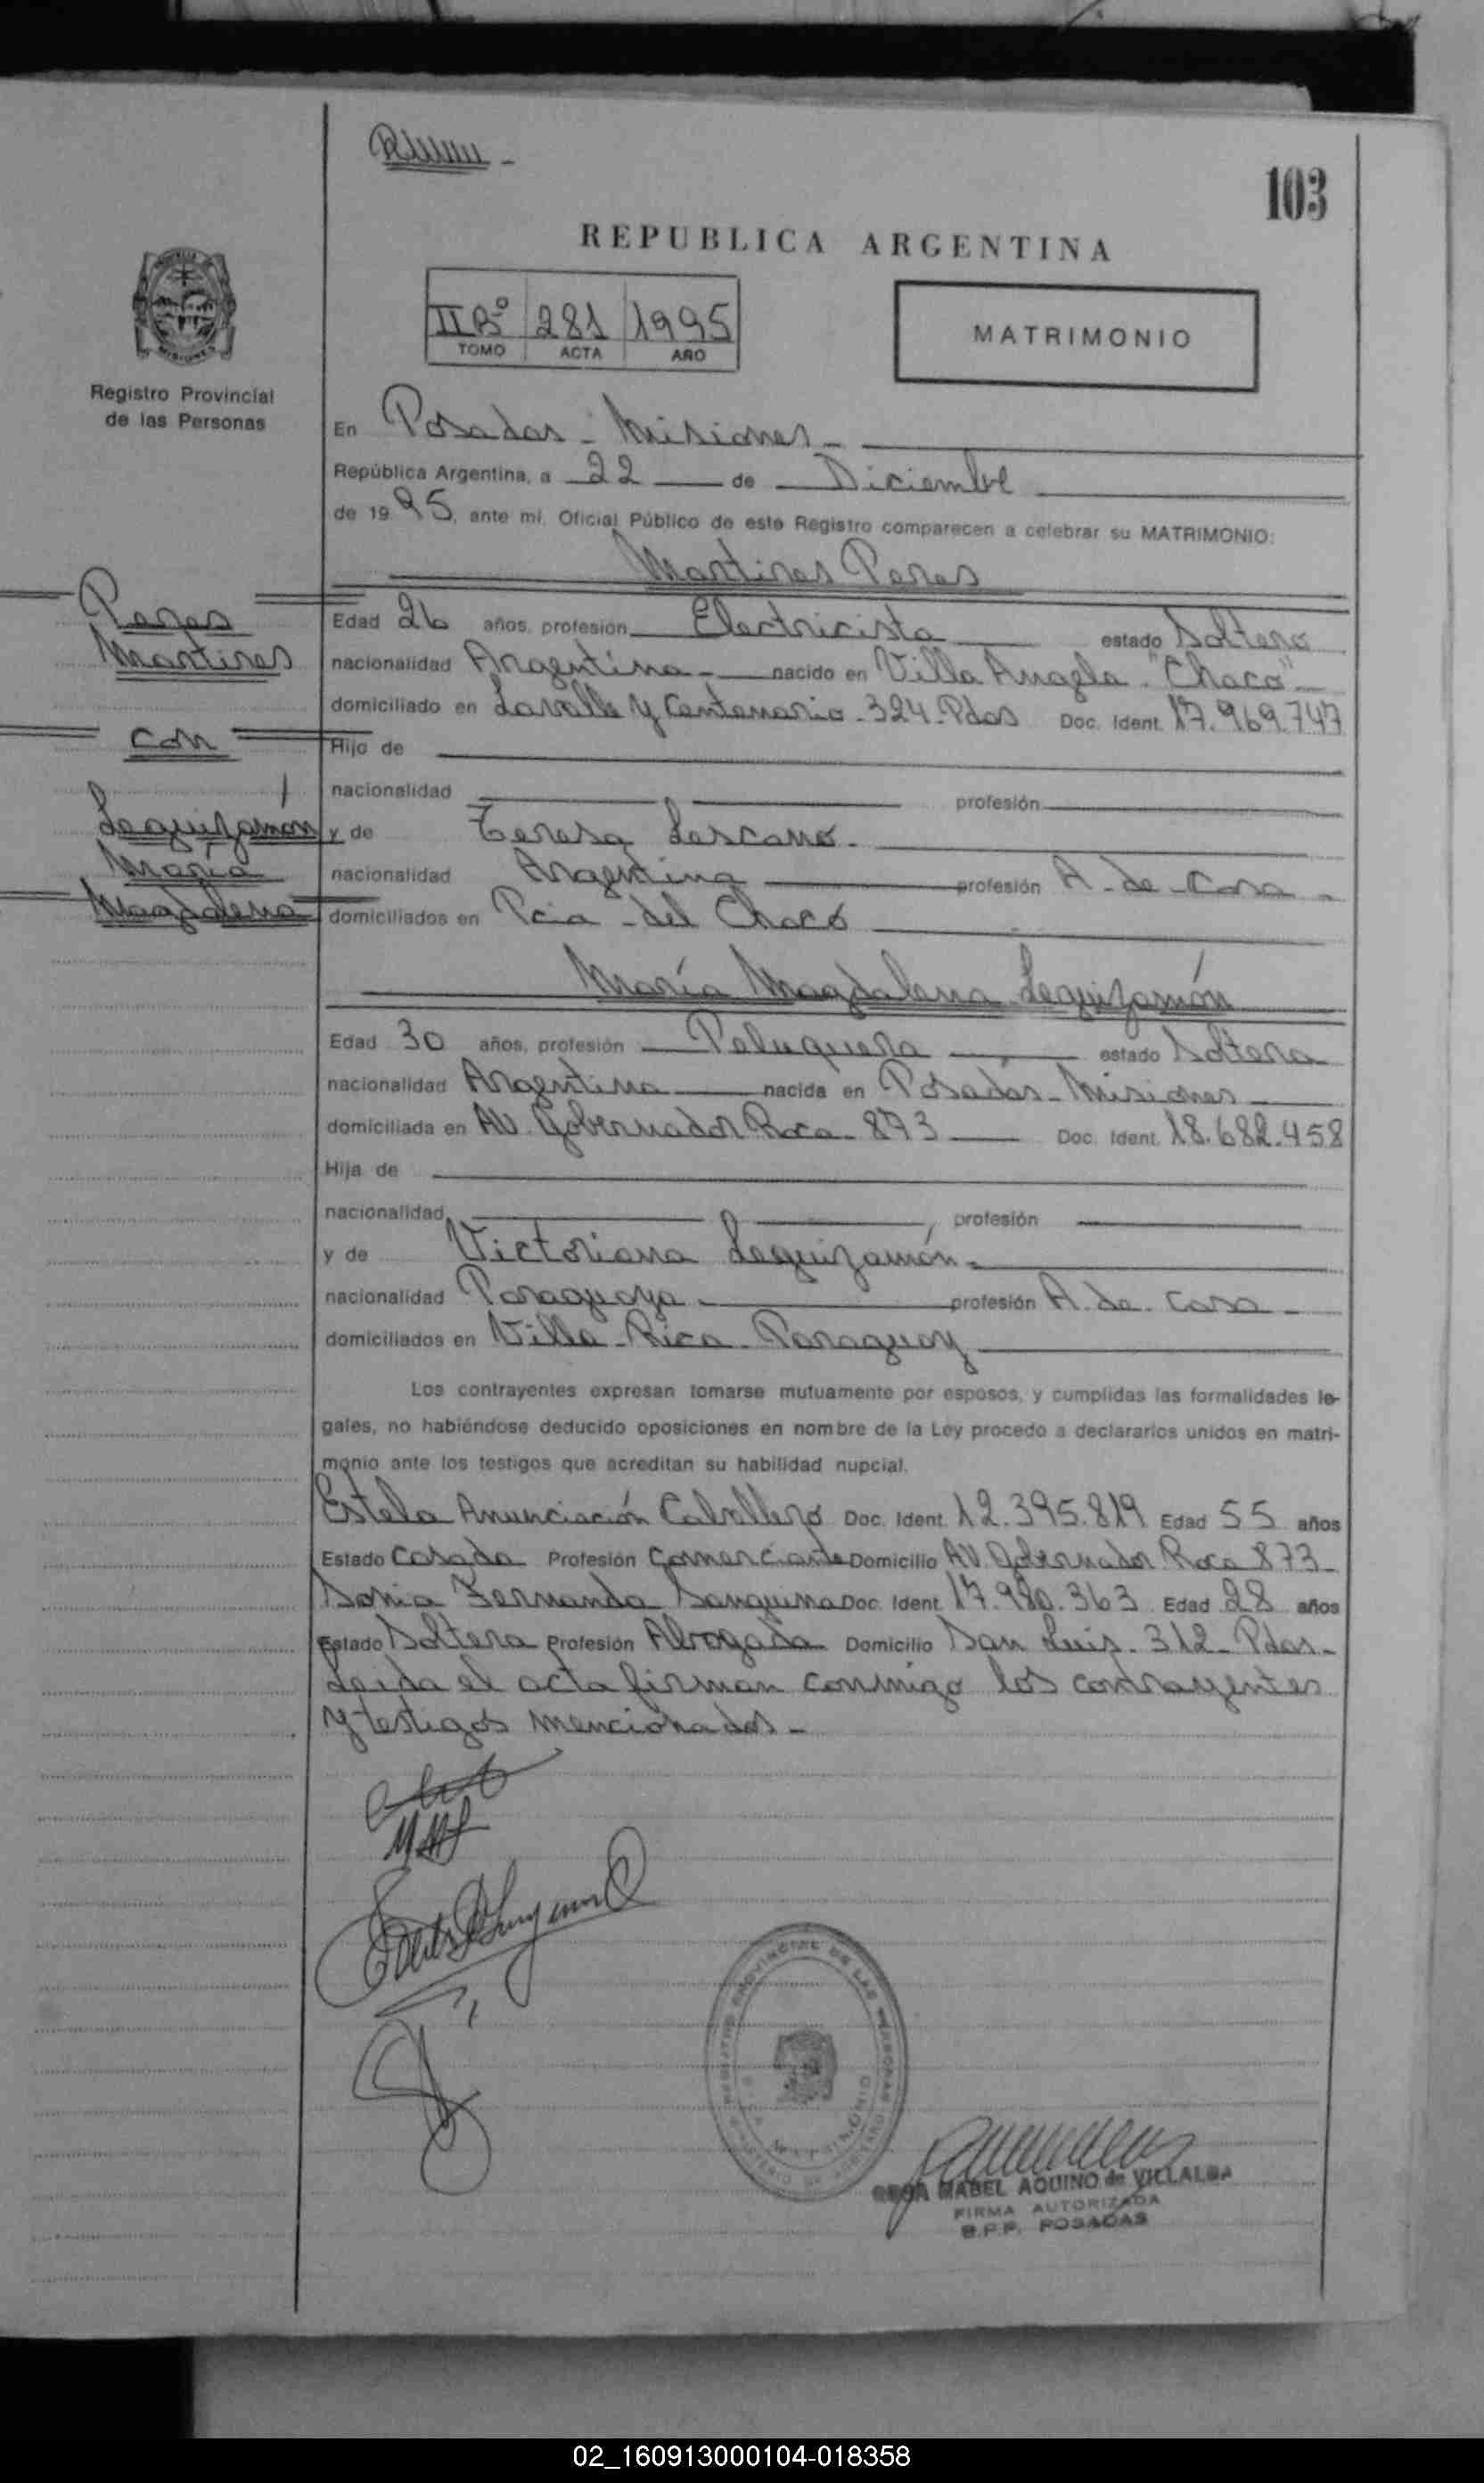 103
REPUBLICA ARGENTINA
IIBº 281 1995
TOMO ACTA AÑO
MATRIMONIO
Registro Provincial
de las Personas
En Posadas - Misiones -
República Argentina, a 22 de Diciembre
de 19 95, ante mí, Oficial Público de este Registro comparecen a celebrar su MATRIMONIO:
Martires Peres
Peres
Martires
con
Leguizamón
María
Magdalena
Edad 26 años, profesión Electricista estado Soltero
nacionalidad Argentina - nacido en Villa Angela - "Chaco" -
domiciliado en Lavalle y Centenario - 324 - Pdas Doc. Ident. 17.969.747
Hijo de
nacionalidad profesión
y de Teresa Lescano -
nacionalidad Argentina profesión A - de - Casa -
domiciliados en Pcia - del Chaco
María Magdalena Leguizamón
Edad 30 años, profesión Peluquera estado Soltera
nacionalidad Argentina nacida en Posadas - Misiones
domiciliada en AV. Gobernador Roca - 873 Doc. Ident. 18.682.458
Hija de
nacionalidad profesión
y de Victoriana Leguizamón -
nacionalidad Paraguaya - profesión A. de. Casa -
domiciliados en Villa - Rica - Paraguay
Los contrayentes expresan tomarse mutuamente por esposos, y cumplidas las formalidades le-
gales, no habiéndose deducido oposiciones en nombre de la Ley procedo a declararlos unidos en matri-
monio ante los testigos que acreditan su habilidad nupcial.
Estela Anunciación Caballero Doc. Ident. 12.395.819 Edad 55 años
Estado Casada Profesión Comerciante Domicilio AV. Gobernador Roca 873 -
Sonia Fernanda Sanquina Doc. Ident. 17.980.363 Edad 28 años
Estado Soltera Profesión Abogada Domicilio San Luis - 312 - Pdas -
Leida el acta firman conmigo los contrayentes
y testigos mencionados -
MABEL AQUINO de VILLALBA
FIRMA AUTORIZADA
R.P.P. POSADAS
02_160913000104-018358